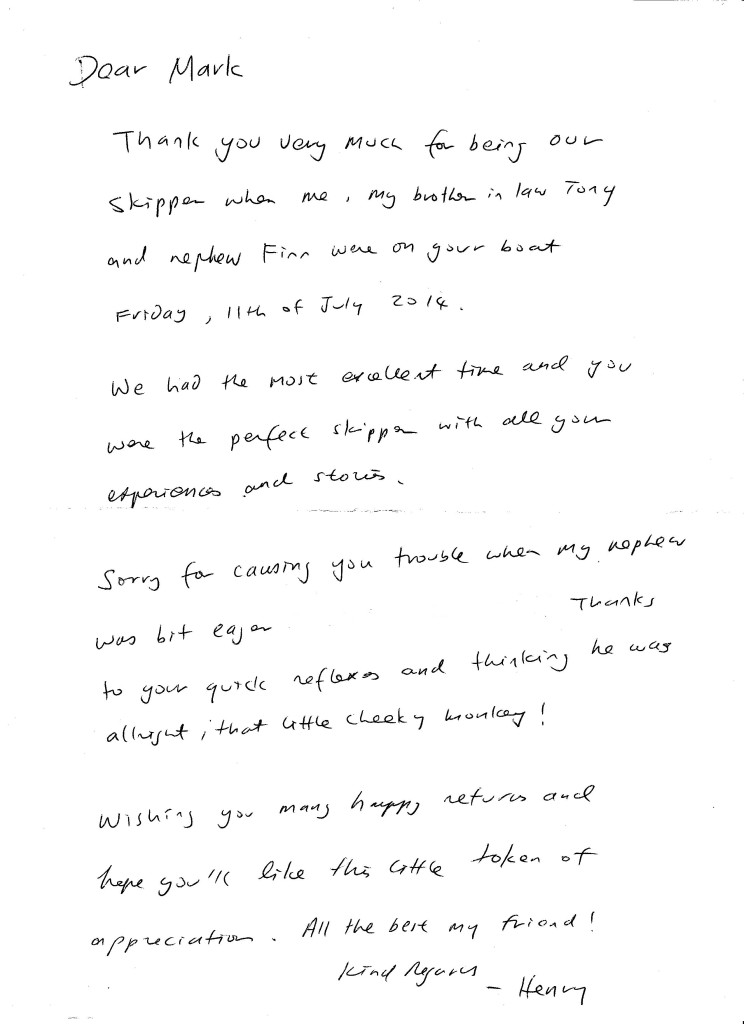 Dear Mark
Thank you very much for being our
skipper when me, my brother in law Tony
and nephew Finn were on your boat
Friday, 11th of July 2014.
We had the most excellent time and you
were the perfect skipper with all your
experiences and stories.
Sorry for causing you trouble when my nephew
was bit eager
Thanks
to your quick reflexes and thinking he was
allright, that little cheeky monkey!
Wishing you many happy returns and
hope you'll like this little token of
appreciation. All the best my friend!
Kind Regards
- Henry